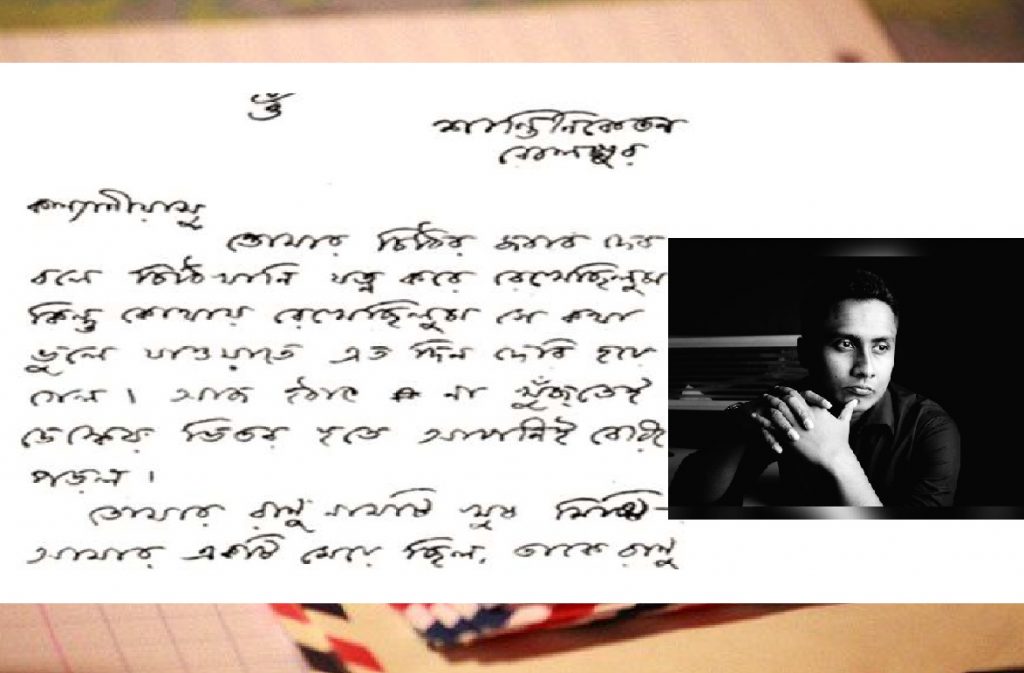 ওঁ
শান্তিনিকেতন
বোলপুর
কল্যাণীয়াসু
তোমার চিঠির জবাব দেব
বলে চিঠিখানি যত্ন করে রেখেছিলুম
কিন্তু কোথায় রেখেছিলুম সে কথা
ভুলে যাওয়াতে এত দিন দেরি হয়ে
গেল। আজ হঠাৎ না খুঁজতেই
ডেস্কের ভিতর হতে আপনিই বেরিয়ে
পড়ল।
তোমার রাণু নামটি খুব মিষ্টি-
আমার একটি মেয়ে ছিল, তাকে রাণু